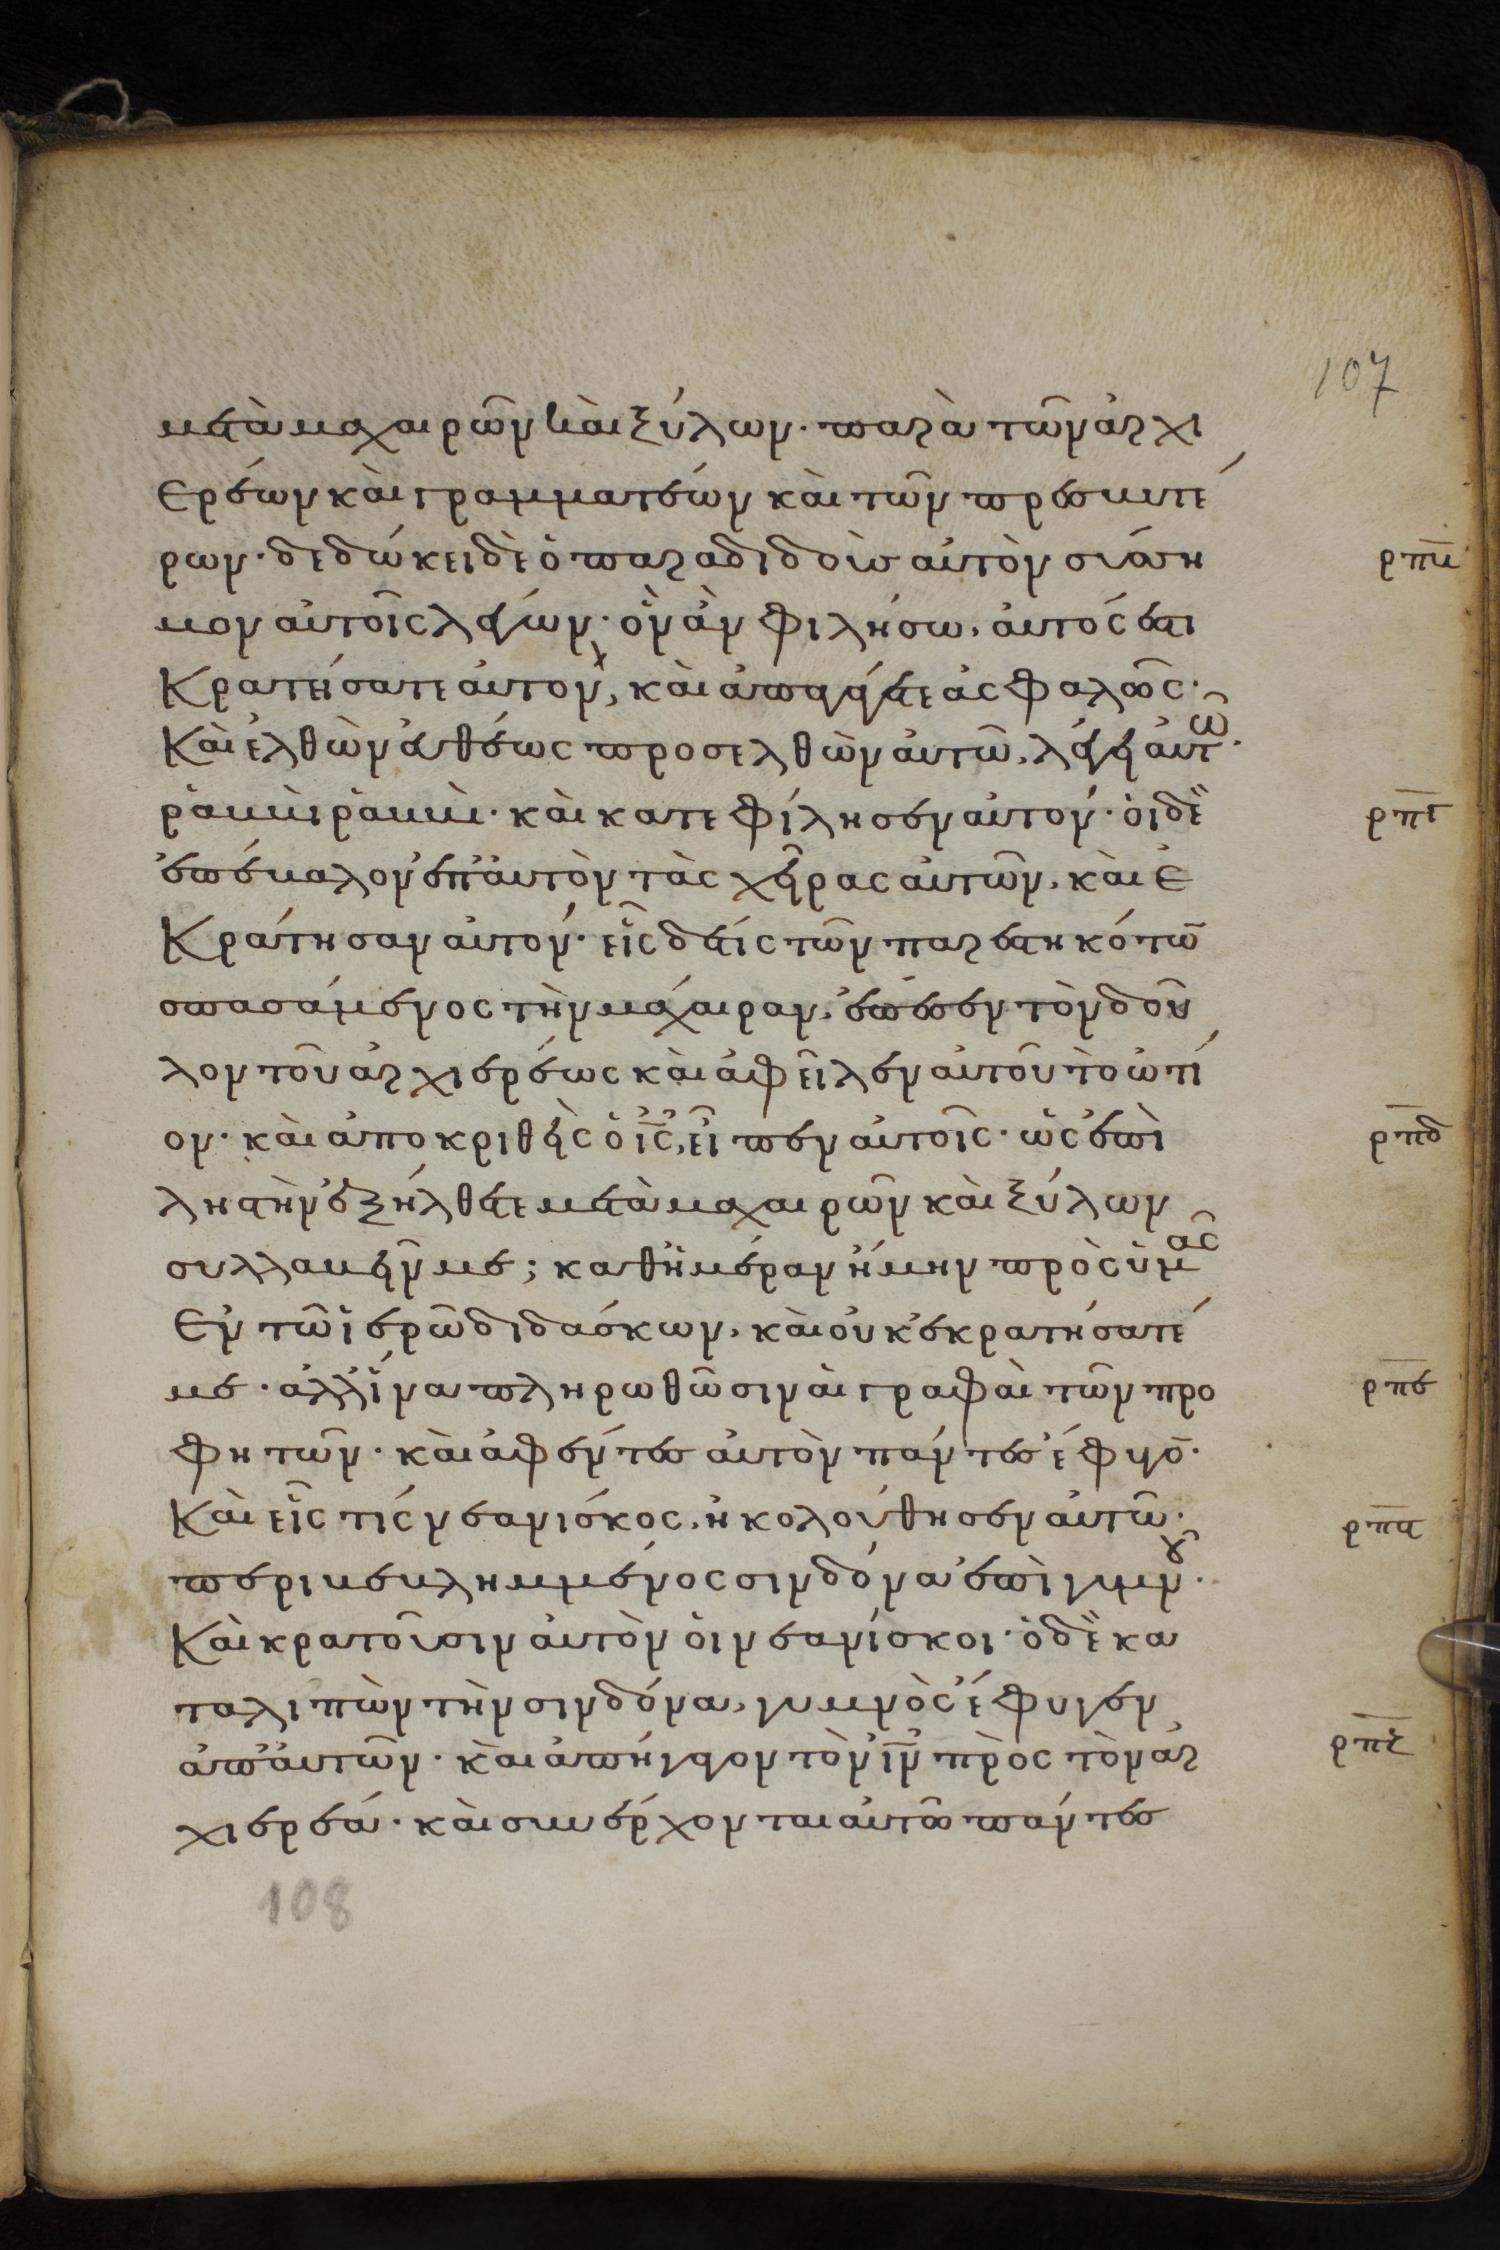 107
μετὰ μαχαιρῶν καὶ ξύλων· παρὰ τῶν ἀρχι
ερέων καὶ γραμματέων καὶ τῶν πρεσβυτέ
ρων· δεδώκει δὲ ὁ παραδιδοὺς αὐτὸν σύσση
ρπβ
μον αὐτοῖς λέγων· ὃν ἂν φιλήσω, αὐτός ἐστι
Κρατήσατε αὐτὸν, καὶ ἀπαγάγετε ἀσφαλῶς·
Καὶ ἐλθὼν εὐθέως προσελθὼν αὐτῶ, λέγει αὐτῶ·
ῥαββὶ ῥαββὶ· καὶ κατεφίλησεν αὐτόν· οἱ δὲ
ρπγ
ἐπέβαλον ἐπ' αὐτὸν τὰς χεῖρας αὐτῶν, καὶ ἐ
Κράτησαν αὐτόν· εἷς δέ τις τῶν παρεστηκότω̄
σπασάμενος τὴν μάχαιραν, ἔπεσεν τὸν δοῦ
λον τοῦ ἀρχιερέως καὶ ἀφεῖλεν αὐτοῦ τὸ ὠτί
ον· καὶ ἀποκριθεὶς ὁ ἰ̅ς̅, εἶπεν αὐτοῖς· ὡς ἐπὶ
ρπδ
ληστὴν ἐξήλθετε μετὰ μαχαιρῶν καὶ ξύλων
συλλαβεῖν με; καθ' ἡμέραν ἤμην πρὸς ὑμᾶς
Ἐν τῶ ἱερῶ διδάσκων, καὶ οὐκ ἐκρατήσατέ
με· ἀλλ' ἵνα πληρωθῶσιν αἱ γραφαὶ τῶν προ
ρπε
φητῶν· καὶ ἀφέντες αὐτὸν πάντες ἔφυγο̄·
Καὶ εἷς τίς νεανίσκος, ἠκολούθησεν αὐτῶ·
ρπϛ
περιβεβλημμένος σινδόνα ἐπὶ γυμνοῦ·
Καὶ κρατοῦσιν αὐτὸν οἱ νεανίσκοι· ὁ δὲ κα
ταλιπὼν τὴν σινδόνα, γυμνὸς ἔφυγεν
ἀπ' αὐτῶν· καὶ ἀπήγαγον τὸν ἰ̅ν̅ πρὸς τὸν ἀρ
ρπζ
χιερέα· καὶ συνέρχονται αὐτῶ πάντες
108